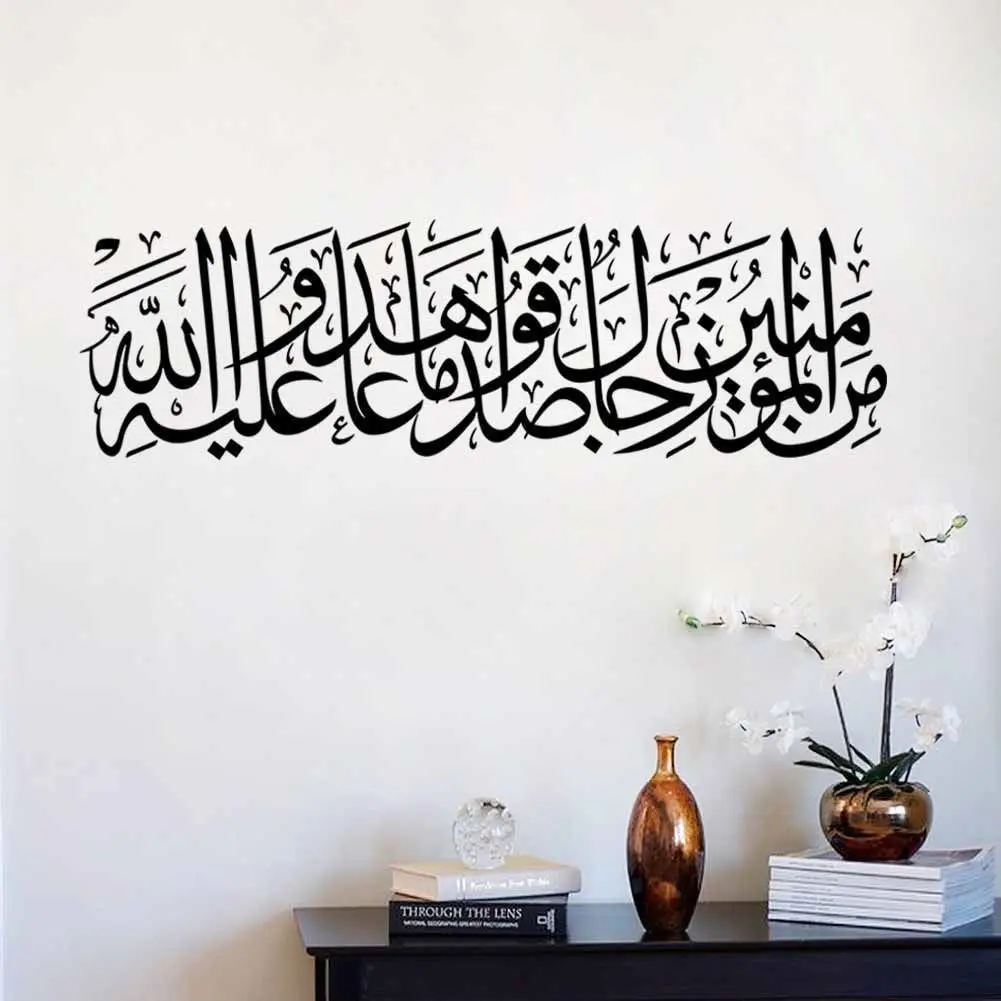 مِنَ الْمُؤْمِنِينَ رِجَالٌ صَدَقُوا مَا عَاهَدُوا اللَّهَ عَلَيْهِ
THROUGH THE LENS
NATIONAL GEOGRAPHIC GREATEST PHOTOGRAPHS